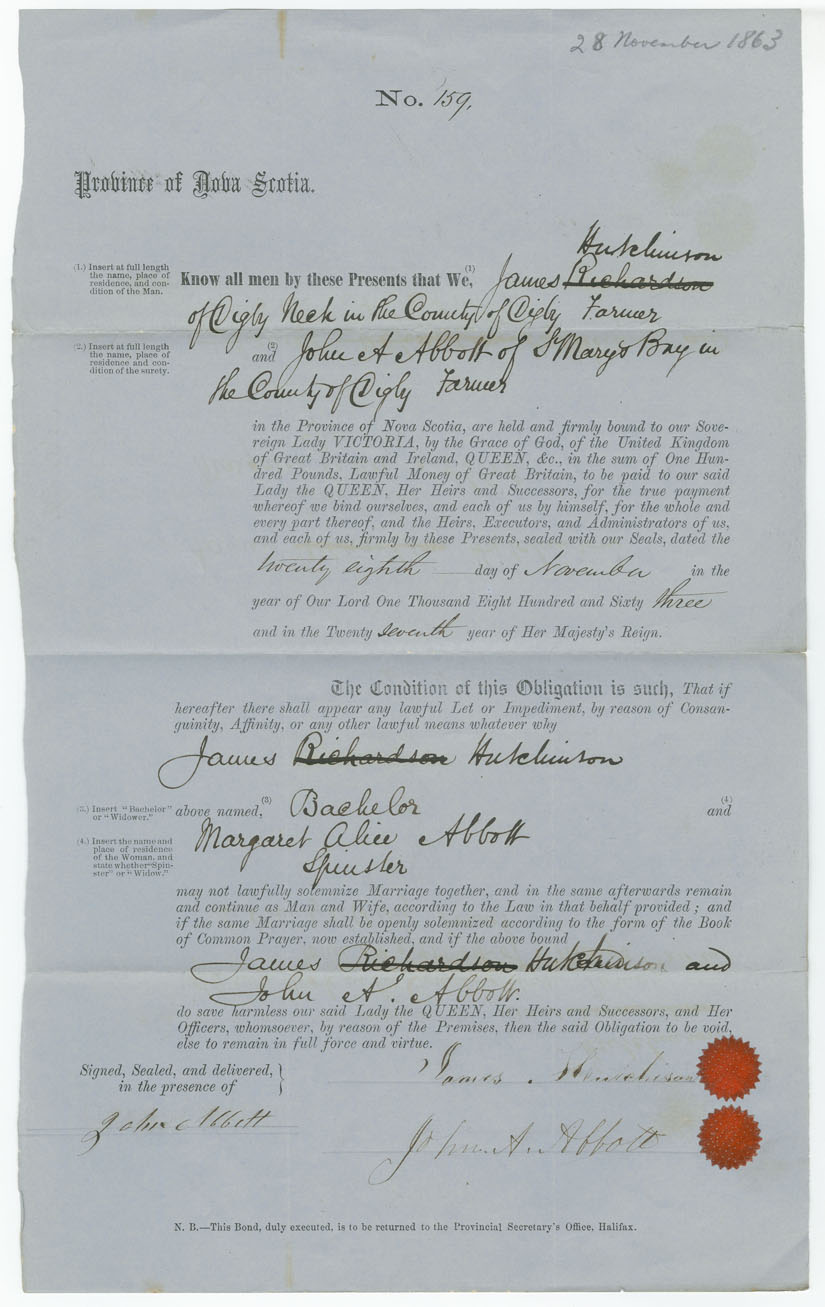 28 November 1863
No. 159.
Province of Nova Scotia.
Hutchinson
(1.) Insert at full length
the name, place of
residence, and con-
dition of the Man.
Know all men by these Presents that We, (1) James Richardson
of Digby Neck in the County of Digby Farmer
(2.) Insert at full length
the name, place of
residence and con-
dition of the surety.
(2)
and John A Abbott of St Marys Bay in
the County of Digby Farmer
in the Province of Nova Scotia, are held and firmly bound to our Sove-
reign Lady VICTORIA, by the Grace of God, of the United Kingdom
of Great Britain and Ireland, QUEEN, &c., in the sum of One Hun-
dred Pounds, Lawful Money of Great Britain, to be paid to our said
Lady the QUEEN, Her Heirs and Successors, for the true payment
whereof we bind ourselves, and each of us by himself, for the whole and
every part thereof, and the Heirs, Executors, and Administrators of us,
and each of us, firmly by these Presents, sealed with our Seals, dated the
twenty eighth day of November in the
year of Our Lord One Thousand Eight Hundred and Sixty three
and in the Twenty seventh year of Her Majesty's Reign.
The Condition of this Obligation is such, That if
hereafter there shall appear any lawful Let or Impediment, by reason of Consan-
guinity, Affinity, or any other lawful means whatever why
James Richardson Hutchinson
(3.) Insert "Bachelor"
or "Widower."
above named, (3) Bachelor and (4)
(4.) Insert the name and
place of residence
of the Woman, and
state whether "Spin-
ster" or "Widow."
Margaret Alice Abbott
Spinster
may not lawfully solemnize Marriage together, and in the same afterwards remain
and continue as Man and Wife, according to the Law in that behalf provided; and
if the same Marriage shall be openly solemnized according to the form of the Book
of Common Prayer, now established, and if the above bound
James Richardson Hutchinson and
John A. Abbott.
do save harmless our said Lady the QUEEN, Her Heirs and Successors, and Her
Officers, whomsoever, by reason of the Premises, then the said Obligation to be void,
else to remain in full force and virtue.
Signed, Sealed, and delivered,
in the presence of
James Hutchinson
John Abbott
John A. Abbott
N. B.—This Bond, duly executed, is to be returned to the Provincial Secretary's Office, Halifax.